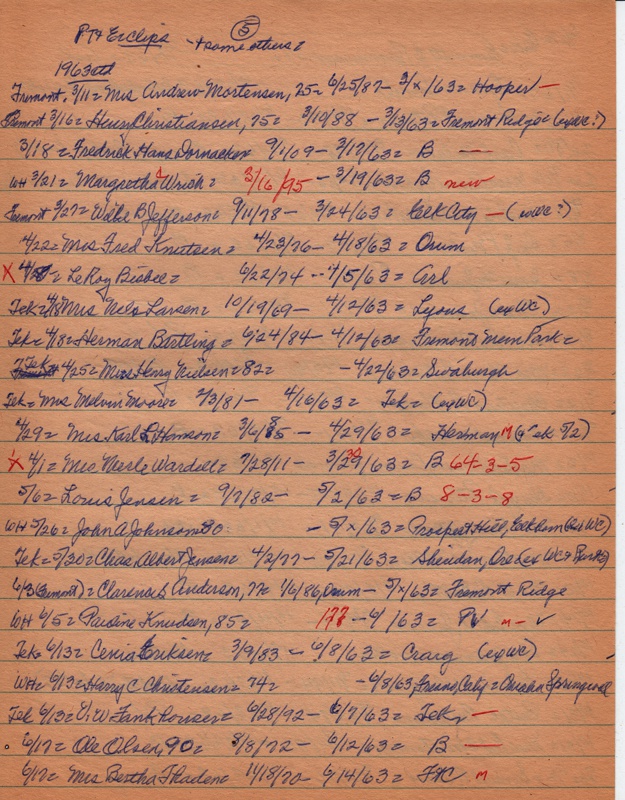 PT & E clips - + some others = (5)
1963
Fremont, 3/11 = Mrs Andrew Mortensen, 75 = 6/25/87 - 3/x/63 = Hooper —
Fremont 3/16 = Christiansen, 75 = 3/10/88 - 3/13/63 = Fremont Ridge = (exWC?)
3/18 = Fredrick Hans Dornacker 9/1/09 - 3/17/63 = B —
WH 3/21 = Margretha Wrich = 3/16/95 - 3/19/63 = B new
Fremont 3/27 = B Jefferson = 9/11/78 - 3/24/63 = Elk City — (exWC?)
4/22 = Mrs Fred Knutsen = 4/23/76 - 4/18/63 = Orum
X = LeRoy Bisbee = 6/22/74 - 4/5/63 = Arl
Tek = 4/18 Mrs Nels Larsen = 10/19/69 - 4/12/63 = Lyons (exWC)
Tek = 4/18 = Herman Bartling = 6/24/84 - 4/12/63 = Fremont Mem Park =
Tek 4/25 = Mrs Henry Nielsen = 82 = - 4/22/63 = Swaburgh
Tek = Mrs Melvin Moore = 2/3/81 - 4/16/63 = Tek = (exWC)
4/29 = Mrs Karl L Hanson = 3/6/85 - 4/29/63 = Herman M (Tek 5/2)
X 4/1 = Mrs Merle Wardell = 7/28/11 - 3/30/63 = B 64-3-5
5/6 = Louis Jensen = 9/7/82 - 5/2/63 = B 8-3-8
WH 5/26 = John A Johnson = 90 = - 5/x/63 = Prospect Hill, Elkhorn (exWC)
Tek = 5/30 = Chas Albert Jensen = 4/2/77 - 5/21/63 = Sheridan, Ore (ex WC &
6/3 (Fremont) = Clarence S Anderson, 77 = 1/6/86, Orum - 5/x/63 = Fremont Ridge
WH 6/5 = Pauline Knudsen, 85 = 177 - 6/ /63 = PV M - ✓
Tek = 6/13 = Cenia Eriksen = 3/9/83 - 6/8/63 = Craig (exWC)
WH = 6/13 = Harry C Christensen = 74 = - 6/8/63 Calif = Omaha Springwell
Tek 6/13 = V. W. Fankhouser = 6/28/92 - 6/7/63 = Tek —
6/17 = Ole Olsen, 90 = 8/8/72 - 6/12/63 = B —
6/17 = Mrs Bertha Thaden = 11/18/70 - 6/14/63 = FtC M